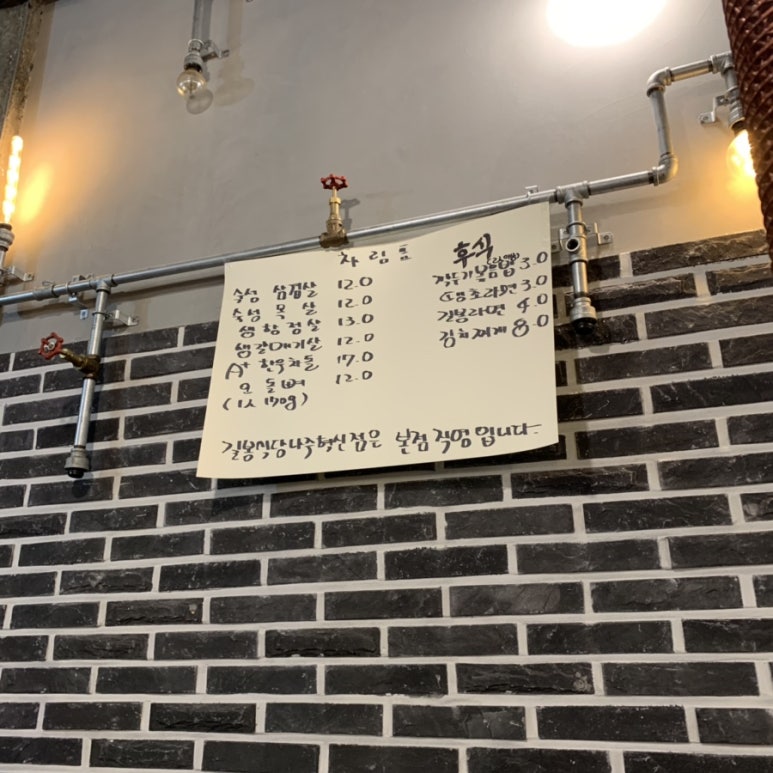 차림표
숙성 삼겹살 12.0
숙성 목살 12.0
생항정살 13.0
생갈매기살 12.0
A+ 한우차돌 17.0
오돌뼈 12.0
(1人 170g)
후식
깍두기볶음밥 3.0
땡초라면 3.0
길봉라면 4.0
김치찌개 8.0
길봉식당나주혁신점은 본점 직영입니다-